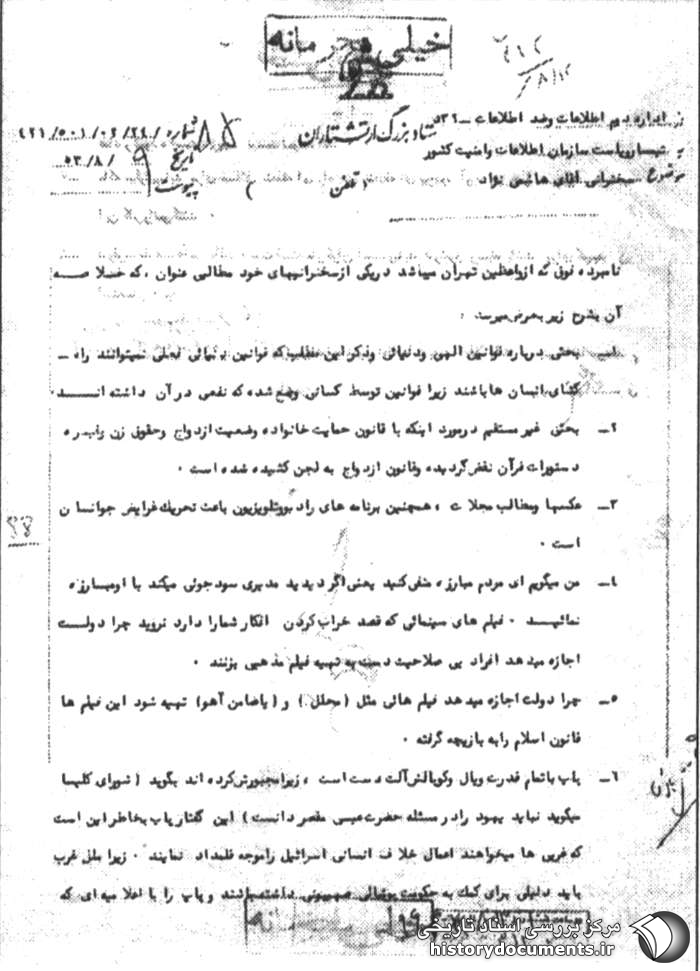 خیلی محرمانه
ستاد بزرگ ارتشتاران
از اداره دوم اطلاعات وضد اطلاعات
به تیمسار ریاست سازمان اطلاعات وامنیت کشور
موضوع سخنرانی آقای هاشمی نژاد
شماره
تاریخ ۹ /۸/ ۵۳
پیوست
( تلفن )
نامبرده فوق که ازواعظین تهران میباشد دریکی ازسخنرانیهای خود مطالبی عنوان ،که خلاصه
آن بشرح زیر بعرض میرسد .
۱ـ بحثی درباره قوانین الهی ودنیائی وذکراین مطلب که قوانین دنیائی فعلی نمیتوانند راه ـ
گشای انسان ها باشند زیرا قوانین توسط کسانی وضع شده که نفعی در آن داشته انـــد .
۲ـ بحثی غیر مستقیم درمورد اینکه با قانون حمایت خانواده وضعیت ازدواج وحقوق زن
دستورات قرآن نقض گردیده وقانون ازدواج به لجن کشیده شده است .
۳ـ عکسها ومطالب مجلات ، همچنین برنامه های رادیووتلویزیون باعث تحریک غرایض جوانان
است .
۴ـ من میگویم ای مردم مبارزه منفی کنید یعنی اگر دیدید مدیری سودجوئی میکند با اومبارزه
نمائیـــد . فیلم های سینمائی که قصد خراب کردن افکار شمارا دارد نروید چرا دولت
اجازه میدهد افراد بی صلاحیت دست به تهیه فیلم مذهبی بزنند .
۵ـ چرا دولت اجازه میدهد فیلم هائی مثل (محلل ) و (یاضامن آهو) تهیه شود این فیلم ها
قانون اسلام رابه بازیچه گرفته .
۶ـ پاپ باتمام قدرت وپال وکوپالش آلت دست است ، زیرامجبورش کرده اند بگوید (شورای کلیسا
میگوید نباید یهود رادر مسئله حضرت عیسی مقصر دانست ) این گفتار پاپ بخاطراین است
که غربی ها میخواهند اعمال خلاف انسانی اسرائیل راموجه قلمداد نمایند . زیرا ملل غرب
باید دلیلی برای کمک به حکومت پوشالی صهیونی داشته باشند و پاپ را با اعلامیه ای که
مرکز بررسی اسناد تاریخی
historydocuments.ir